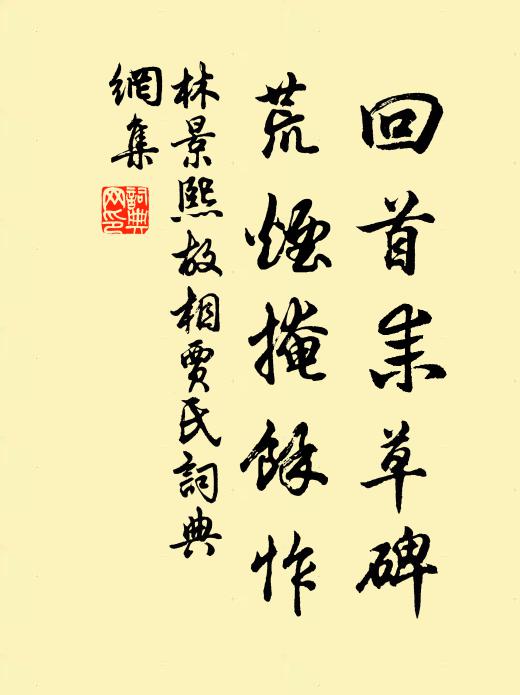 回首耒草碑
荒煙掩餘怍
林景熙故相賈氏詞典
網集
詞典網印